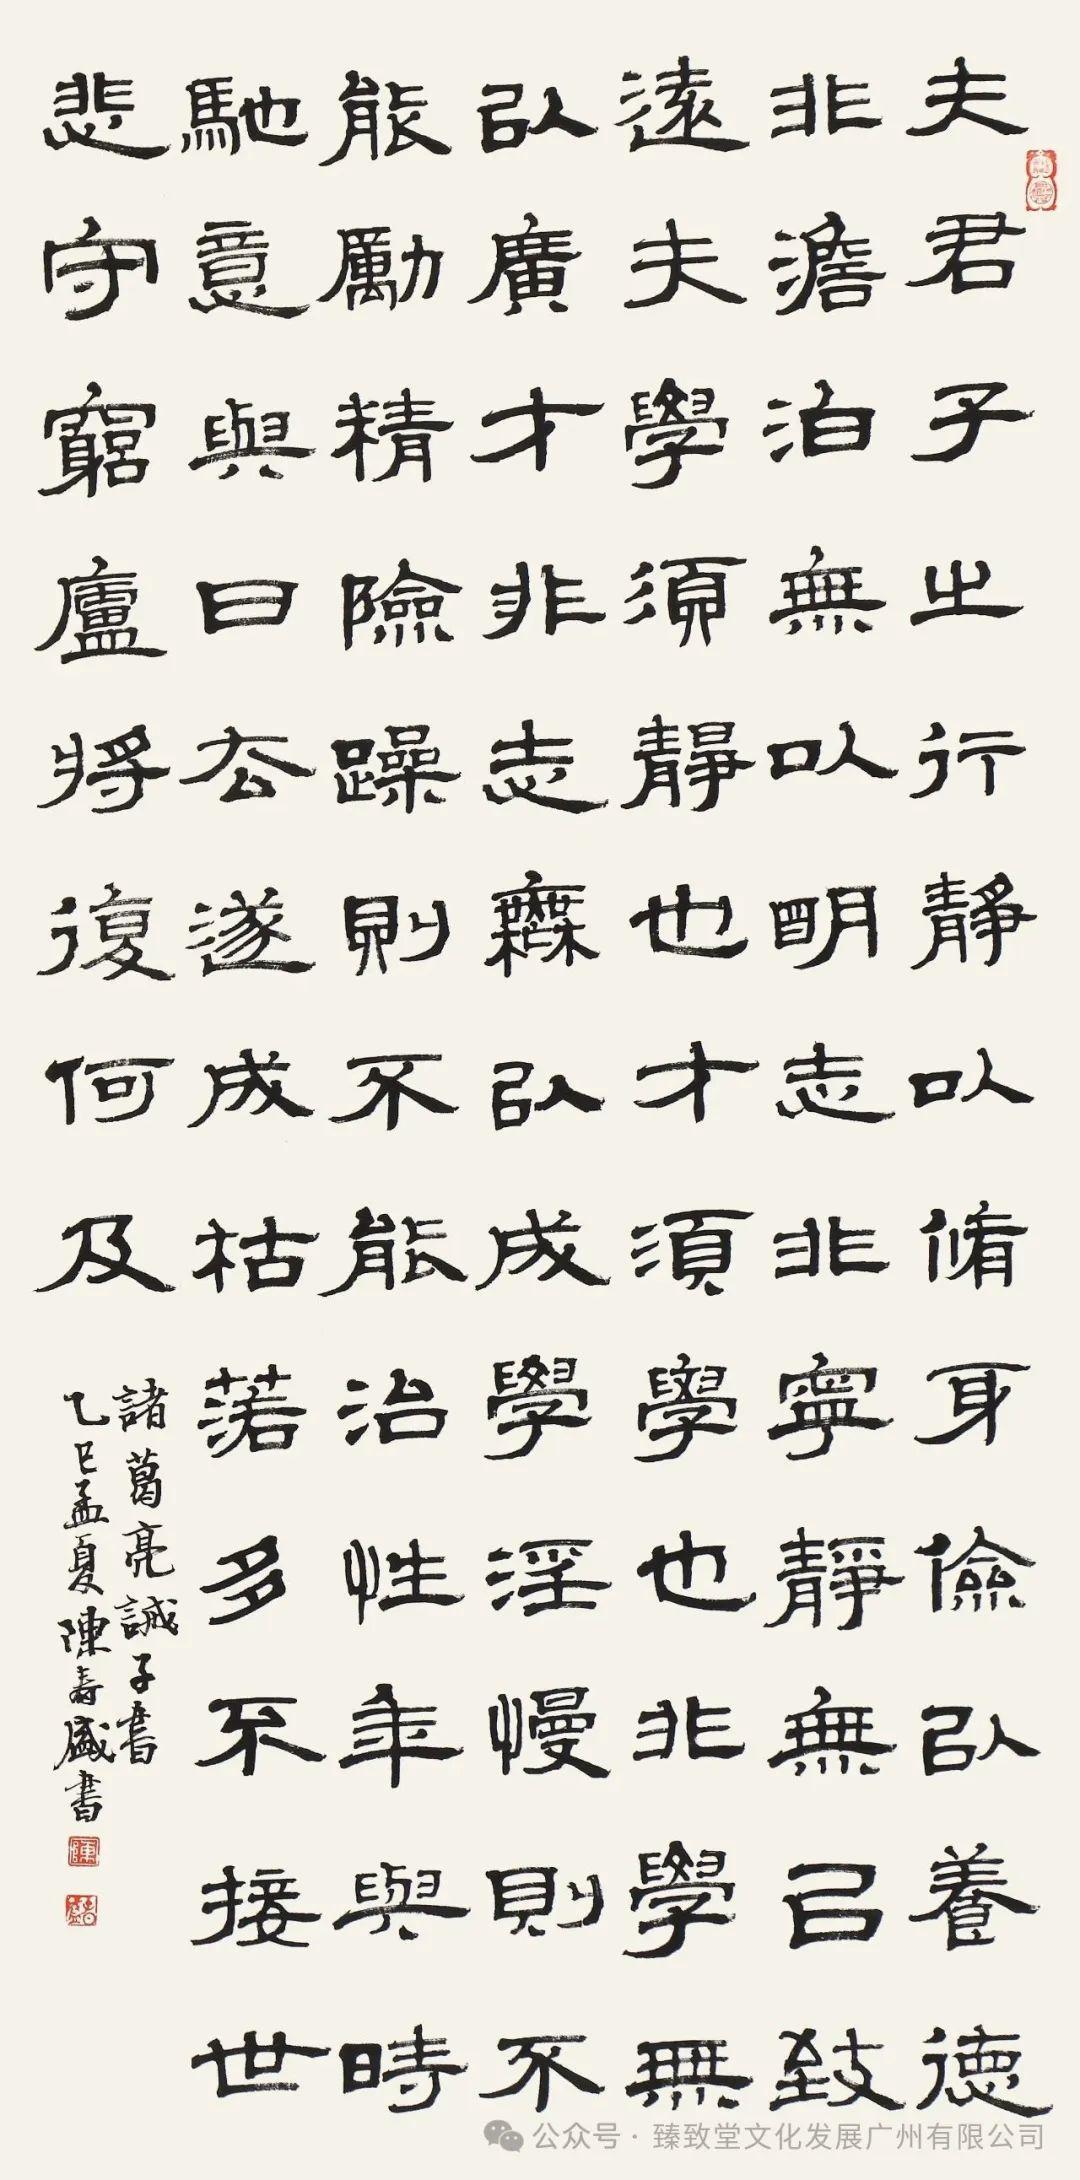 夫君子之行靜以脩身儉以養德
非澹泊無以明志非寧靜無㠯致
遠夫學須靜也才須學也非學無
以廣才非志無以成學淫慢則不
能勵精險躁則不能治性年與時
馳意與日去遂成枯落多不接世
悲守窮廬將復何及
諸葛亮誡子書
乙巳孟夏陳寿盛書
公众号·臻致堂文化发展广州有限公司